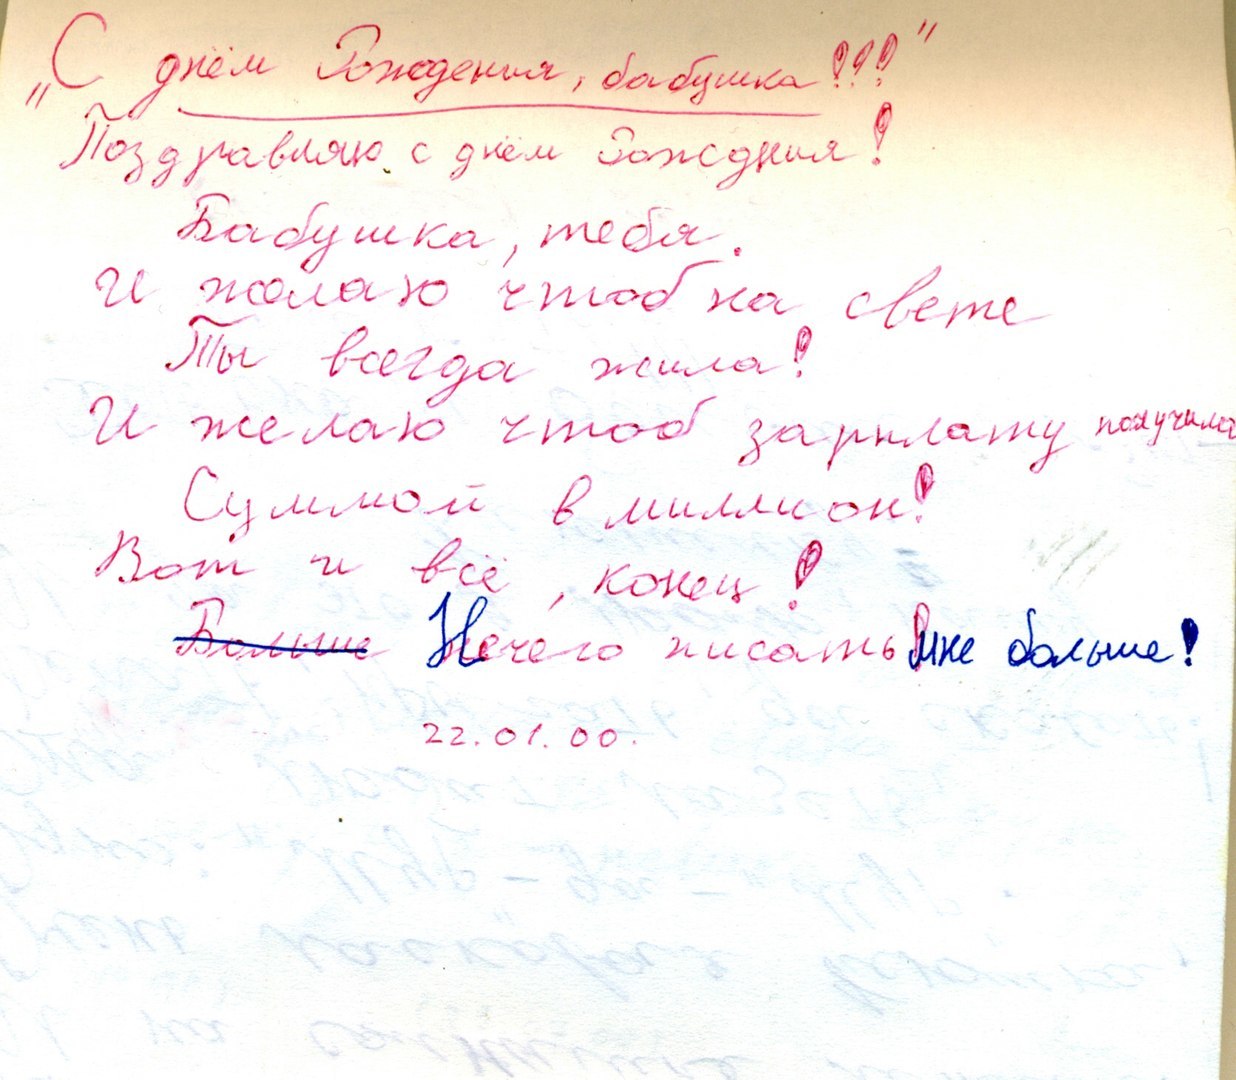 „С днём Рождения, бабушка!!!"
Поздравляю с днём Рождния!
Бабушка, тебя.
И желаю чтоб на свете
Ты всегда жила!
И желаю чтоб зарплату получила
Суммой в миллион!
Вот и всё, конец!
Больше Нечего писать! мне больше!
22.01.00.